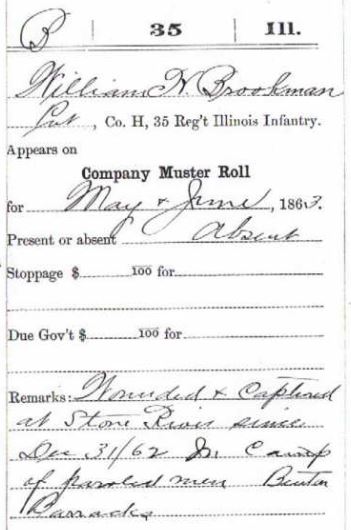 B | 35 | Ill.
William N. Brookman
Pvt, Co. H, 35 Reg't Illinois Infantry.
Appears on
Company Muster Roll
for May & June, 1863.
Present or absent Absent
Stoppage $ 100 for
Due Gov't $ 100 for
Remarks: Wounded & Captured
at Stone River since
Dec 31/62 In Camp
of paroled men Benton
Barracks